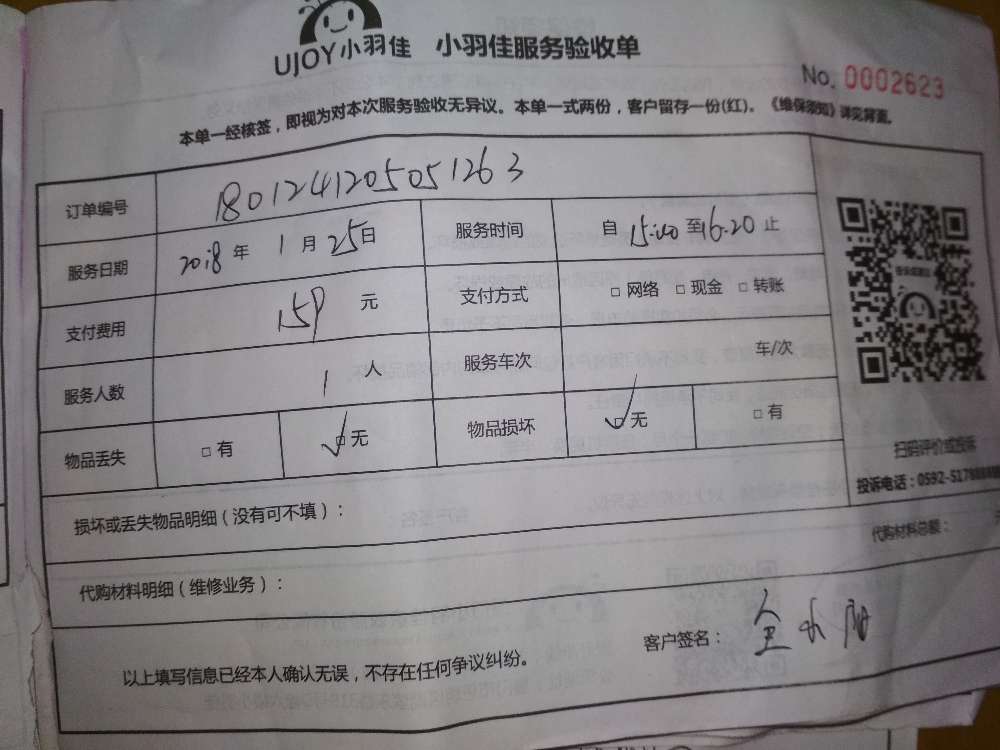 UJOY小羽佳 小羽佳服务验收单
No. 0002623
本单一经核签，即视为对本次服务验收无异议。本单一式两份，客户留存一份(红)。《维保须知》详见背面。
订单编号 1801241205051263
服务日期 2018 年 1 月 25 日 服务时间 自 15:00 至 16:20 止
支付费用 159 元 支付方式 □ 网络 □ 现金 □ 转账
服务人数 1 人 服务车次 车/次
物品丢失 □ 有 ☑ 无 物品损坏 ☑ 无 □ 有
扫码评价或投诉
投诉电话：0592-
损坏或丢失物品明细（没有可不填）：
代购材料明细（维修业务）： 代购材料总额：
以上填写信息已经本人确认无误，不存在任何争议纠纷。 客户签名：